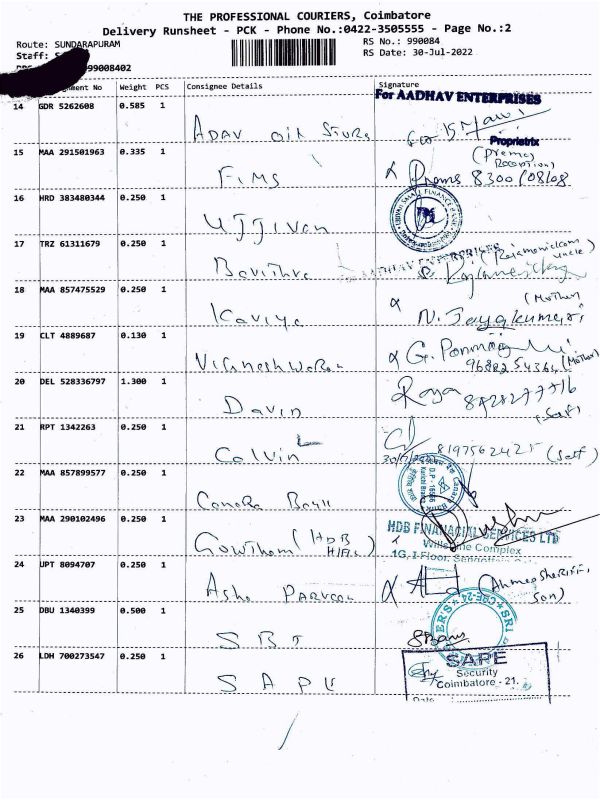 THE PROFESSIONAL COURIERS, Coimbatore
Delivery Runsheet - PCK - Phone No.:0422-3505555 - Page No.:2
Route: SUNDARAPURAM RS No.: 990084
Staff: RS Date: 30-Jul-2022
99008402
No Weight PCS Consignee Details Signature
For AADHAV ENTERPRISES
14 GDR 5262608 0.585 1 ADAV Oil Store
Propriatrix
15 MAA 291501963 0.335 1 FIMS
(Prema
Reception)
Prema 8300108108
16 HRD 383480344 0.250 1 UJJIVAN
UJJIVAN SMALL FINANCE BANK
17 TRZ 61311679 0.250 1 Bavithra
AADHAV ENTERPRISES
(Rajamanickam
uncle)
18 MAA 857475529 0.250 1 Kaviya
(Mother)
N. Jayakumari
19 CLT 4889687 0.130 1 Vigneshwaran
G. Ponmani
(Mother)
20 DEL 528336797 1.300 1 Davin
Raja
(Self)
21 RPT 1342263 0.250 1 Calvin L
8197562425 (Self)
22 MAA 857899577 0.250 1 Canara Bank
Canara Bank
D.P.-16566
23 MAA 290102496 0.250 1 Gowtham (HDB
HDB FINANACIAL SERVICES LTD
Complex
1G, I-Floor,
24 UPT 8094707 0.250 1 Asha Parveen
(Ahmed Sheriff,
Son)
25 DBU 1340399 0.500 1 SBI
26 LDH 700273547 0.250 1 SAPE
SAPE
Security
Coimbatore - 21.
Date